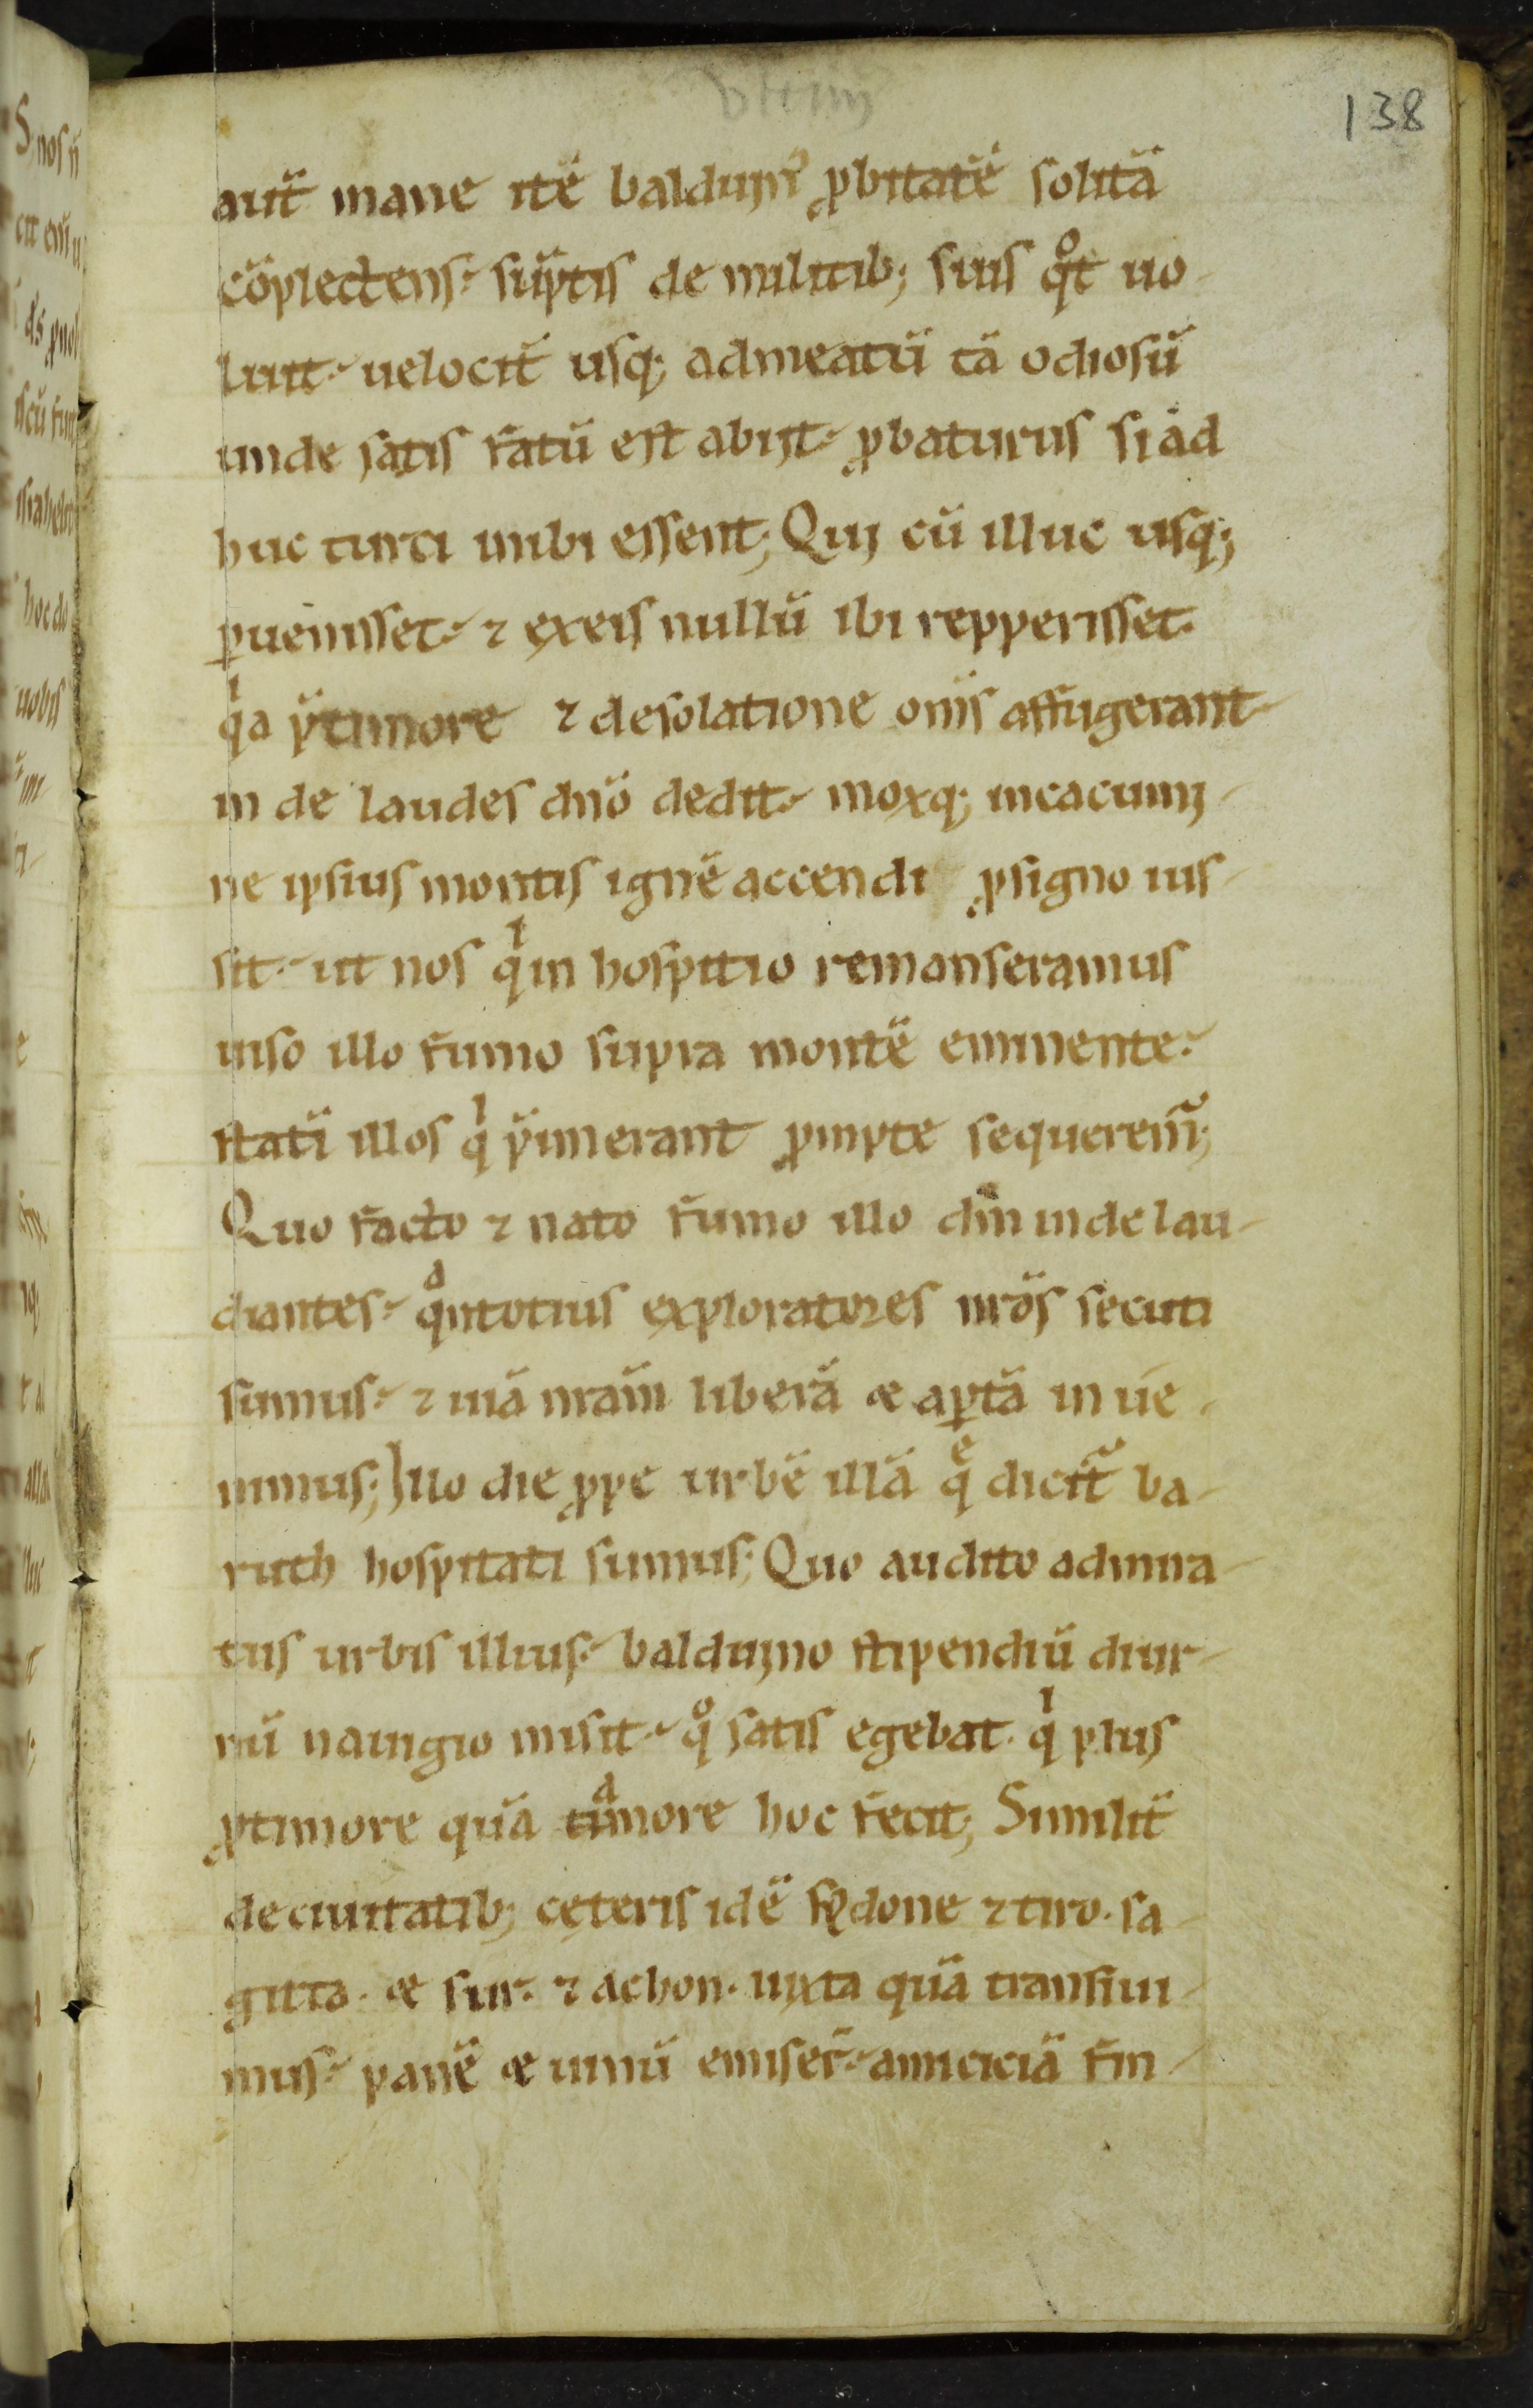 138
aut̄ mane itē balduin᷒ ꝓbitatē solitā
cōplectens. sūptis de militib; suis qͦt uo-
luit. uelocit̄ usq; admeatū tā odiosū
unde satis fatū est abiit. ꝓbaturus si ad
huc turci inibi essent; Qui cū illuc usq;
ꝑuenisset. ⁊ exeis nullū ibi repperisset.
qⁱa p̄timore ⁊ desolatione om̄s affugerant
in de laudes dn̄o dedit. moxq; incacumi-
ne ipsius montis ignē accendi ꝓsigno ius-
sit. ut nos qⁱin hospitio remanseramus
uiso illo fumo supra montē eminente.
statī illos qⁱ p̄mierant ꝓmpte sequerem̄;
Quo facto ⁊ nato fumo illo dm̄ inde lau-
diantes. qᵃntotius exploratores nr̄os secuti
sumus. ⁊ uiā nram̄ liberā æ aꝑtā in ue-
nimus; Illo die ꝓpe urbē illā qᵉ dicit̄ ba-
ruth hospitati sumus; Quo audito admira-
tus urbis illius. balduino stipendiū diur-
nū nauigio misit. qͦ satis egebat. qⁱ plus
ꝓtimore quā tiᵃmore hoc fecit; Similit̄
de ciuitatib; cęteris idē sydone ⁊ tiro. sa-
gitta. æ sur. ⁊ achon. iuxta quā transiui-
mus. panē æ uinū emiser̄. amiciciā fin-